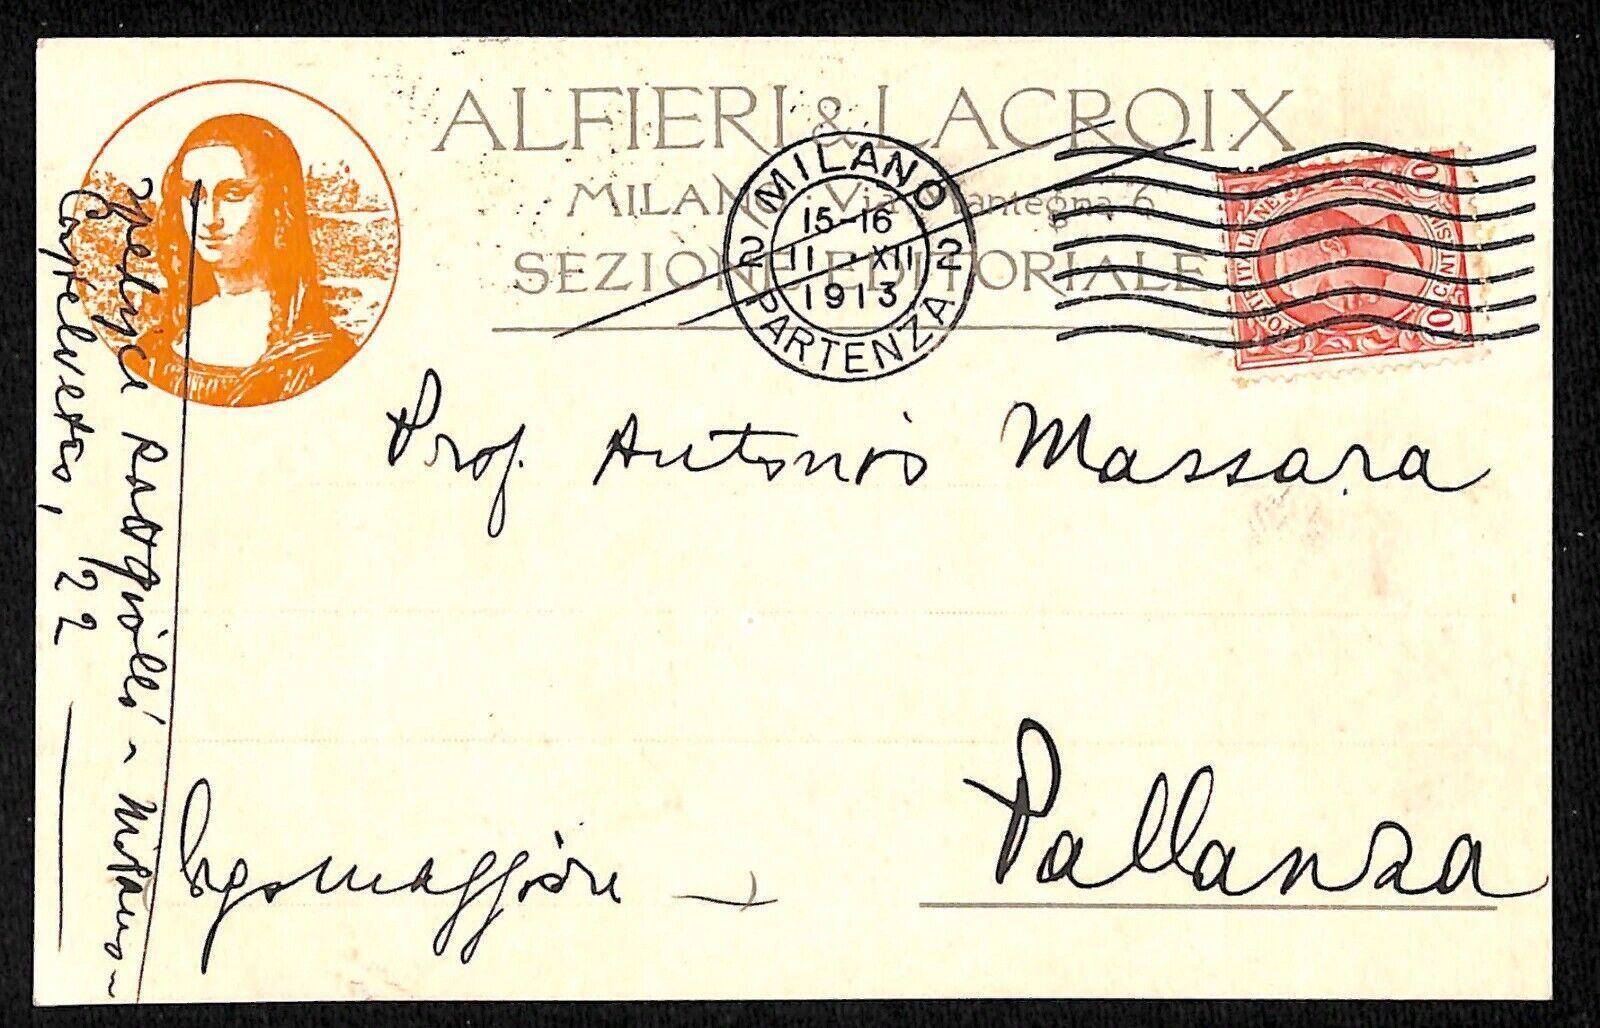 ALFIERI & LACROIX
MILANO Via Mantegna 6
SEZIONE EDITORIALE
MILANO
15-16
2 11 XII 2
1913
PARTENZA
Prof. Antonio Massara
Pallanza
Lagomaggiore
- Milano -
Castelvetro, 22